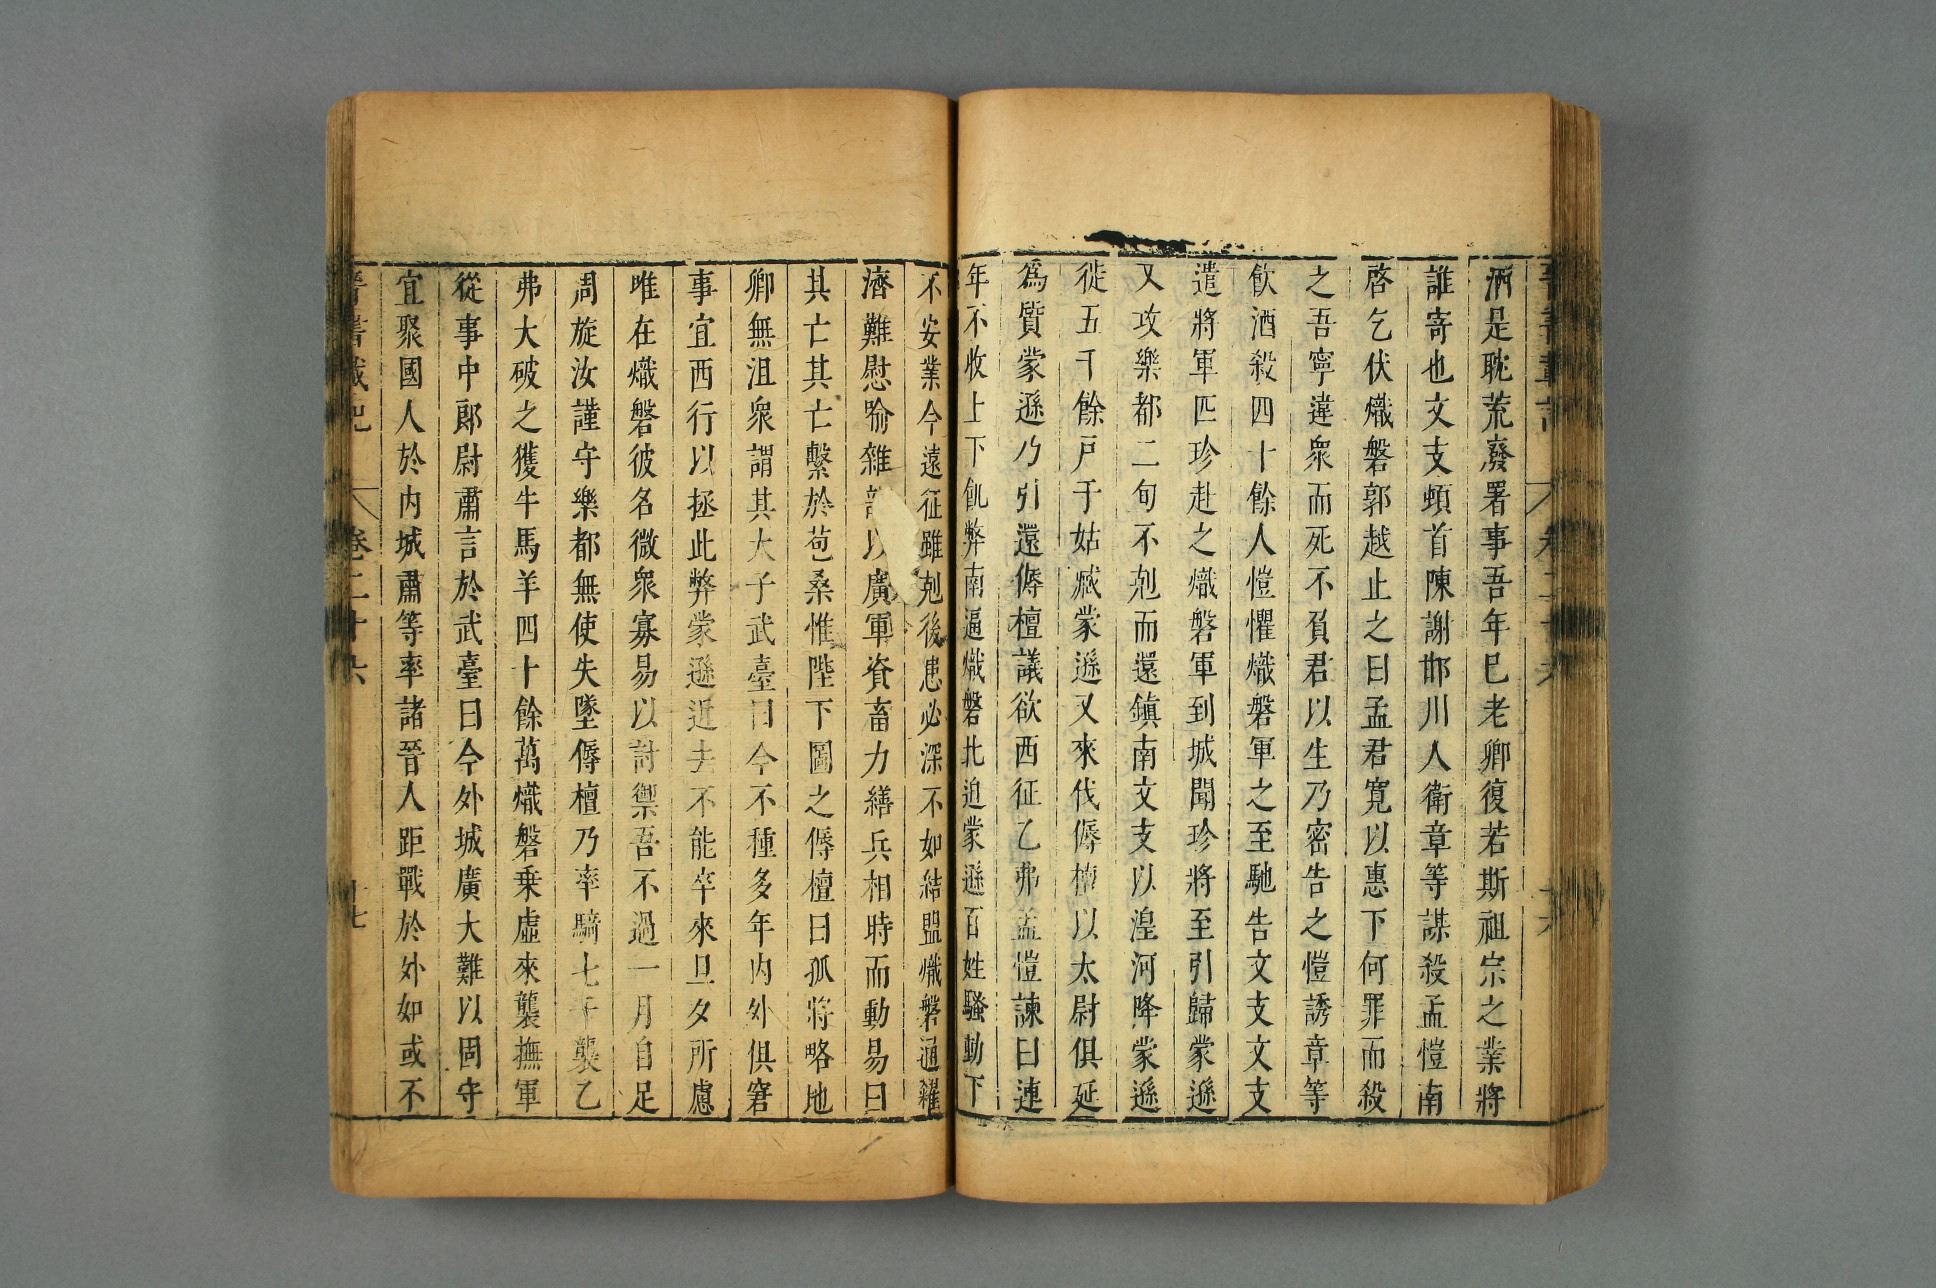 酒是耽荒廢署事吾年已老卿復若斯祖宗之業將
誰寄也文支頓首陳謝邯川人衛章等謀殺孟愷南
啓乞伏熾磐郭越止之曰孟君寬以惠下何罪而殺
之吾寧違衆而死不負君以生乃密告之愷誘章等
飲酒殺四十餘人愷懼熾磐軍之至馳告文支文支
遣將軍匹珍赴之熾磐軍到城聞珍將至引歸蒙遜
又攻樂都二旬不剋而還鎮南文支以湟河降蒙遜
徙五千餘戸于姑臧蒙遜又來伐傉檀以太尉俱延
爲質蒙遜乃引還傉檀議欲西征乙弗孟愷諫曰連
年不收上下飢弊南逼熾磐北迫蒙遜百姓騷動下
不安業今遠征雖剋後患必深不如結盟熾磐通糴
濟難慰喻雜以廣軍資畜力繕兵相時而動易曰
其亡其亡繫於苞桑惟陛下圖之傉檀曰孤將略地
卿無沮衆謂其大子武臺曰今不種多年内外俱窘
事宜西行以拯此弊蒙遜近去不能卒來旦夕所慮
唯在熾磐彼名微衆寡易以討禦吾不過一月自足
周旋汝謹守樂都無使失墜傉檀乃率騎七千襲乙
弗大破之獲牛馬羊四十餘萬熾磐乗虛來襲撫軍
從事中郎尉肅言於武臺曰今外城廣大難以固守
宜聚國人於内城肅等率諸晉人距戰於外如或不
晉書載記 卷二十六 十七